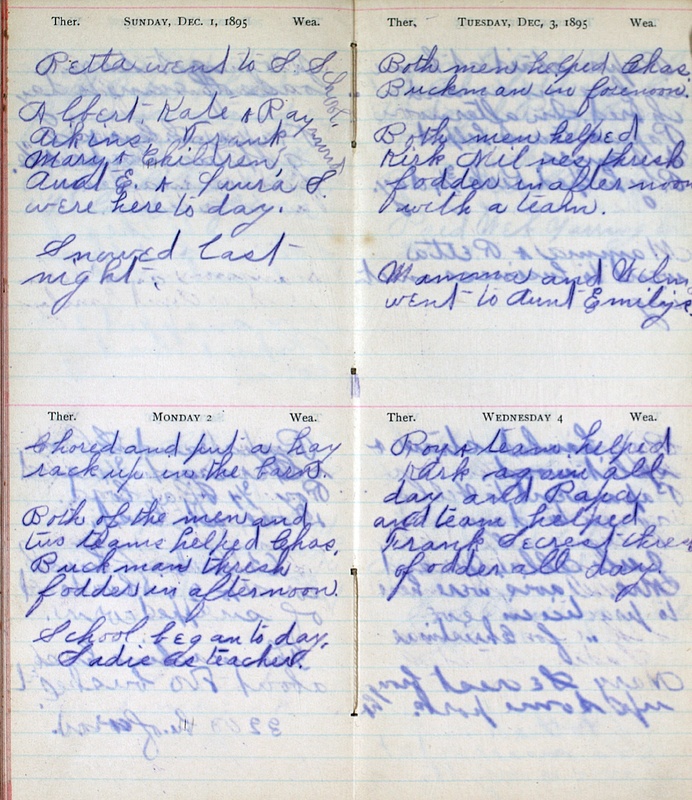 Ther. Sunday, Dec. 1, 1895 Wea.
Retta went to S. School.
Albert, Kate & Raymond
Akins, Frank,
Mary & Children,
Aunt E. & Laura S.
were here to day.
Snowed last
night.
Monday 2
Ther. Wea.
Chored and put a hay
rack up in the barn.
Both of the men and
tus teams helped Chas.
Buckman thresh
fodder in afternoon.
School began to day.
Sadie as teacher.
Ther. Tuesday, Dec, 3, 1895 Wea.
Both men helped Chas.
Buckman in forenoon.
Both men helped
Kirk Milnes thresh
fodder in afternoon
with a team.
Mamma and
went to Aunt Emilys.
Ther. Wednesday 4 Wea.
Roy & team helped
Kirk again all
day and Papa
and team helped
Frank Secrest
fodder all day